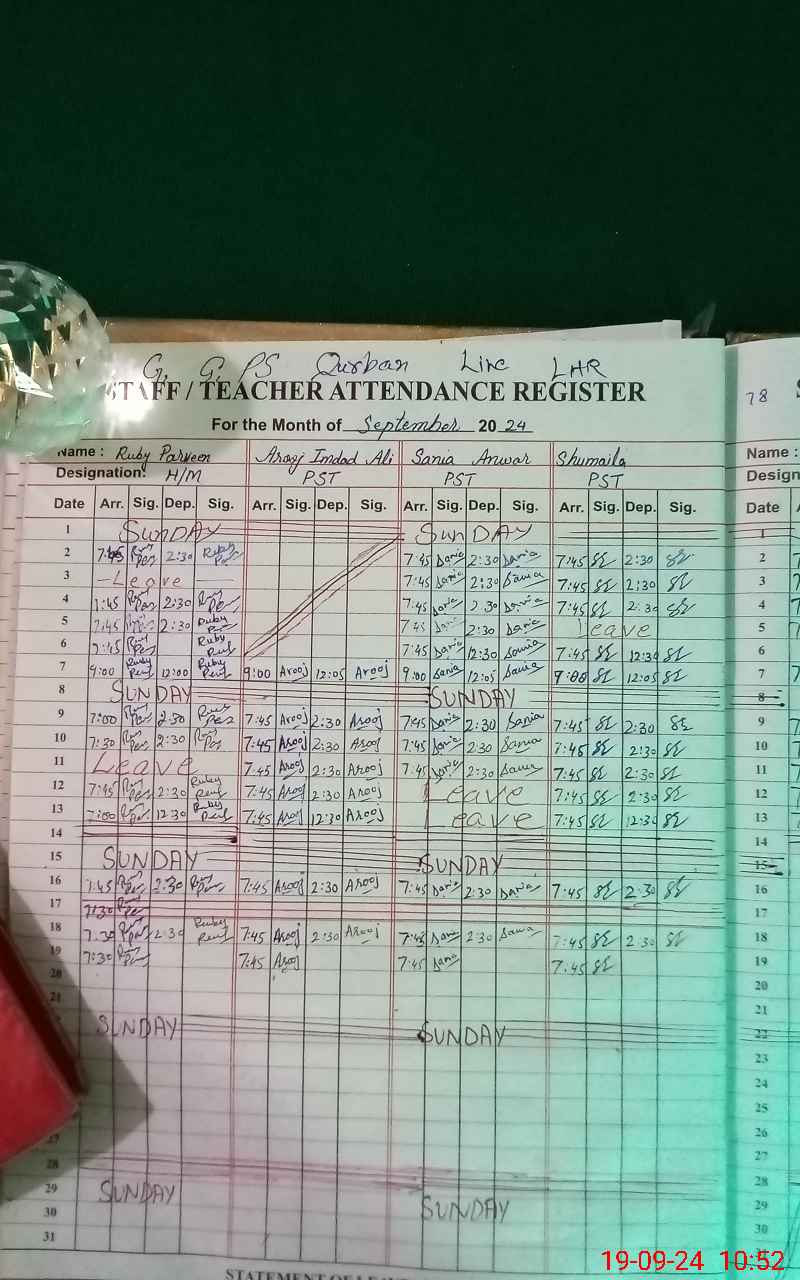 G. G. PS Qurban Line LHR
STAFF / TEACHER ATTENDANCE REGISTER
For the Month of September 20 24
78
Name : Ruby Parveen Arooj Imdad Ali Sania Anwar Shumaila Name :
Designation: H/M PST PST PST
Date Arr. Sig. Dep. Sig. Arr. Sig. Dep. Sig. Arr. Sig. Dep. Sig. Arr. Sig. Dep. Sig. Date
1 SUNDAY SUNDAY 1
2 7:45 2:30 7:45 Sania 2:30 Sania 7:45 2:30 2
3 Leave 7:45 Sania 2:30 Sania 7:45 2:30 3
4 7:45 2:30 7:45 Sania 2:30 Sania 7:45 2:30 4
5 7:45 2:30 Ruby 7:45 Sania 2:30 Sania Leave 5
6 7:45 Ruby 7:45 Sania 12:30 Sania 7:45 12:30 6
7 9:00 Ruby 12:00 Ruby 9:00 Arooj 12:05 Arooj 9:00 Sania 12:05 Sania 9:00 12:05 7
8 SUNDAY SUNDAY 8
9 7:00 2:30 7:45 Arooj 2:30 Arooj 7:45 Sania 2:30 Sania 7:45 2:30 9
10 7:30 2:30 7:45 Arooj 2:30 Arooj 7:45 Sania 2:30 Sania 7:45 2:30 10
11 Leave 7:45 Arooj 2:30 Arooj 7:45 Sania 2:30 Sania 7:45 2:30 11
12 7:45 2:30 Ruby 7:45 Arooj 2:30 Arooj Leave 7:45 2:30 12
13 7:00 12:30 Ruby 7:45 Arooj 12:30 Arooj Leave 7:45 12:30 13
14 14
15 SUNDAY SUNDAY 15
16 7:45 2:30 7:45 Arooj 2:30 Arooj 7:45 Sania 2:30 Sania 7:45 2:30 16
17 7:30 17
18 7:30 2:30 Ruby 7:45 Arooj 2:30 Arooj 7:45 Sania 2:30 Sania 7:45 2:30 18
19 7:30 7:45 Arooj 7:45 Sania 7:45 19
20 20
21 21
SUNDAY SUNDAY 22
23
24
25
26
27 27
28 28
29 SUNDAY SUNDAY 29
30 30
31
19-09-24 10:52